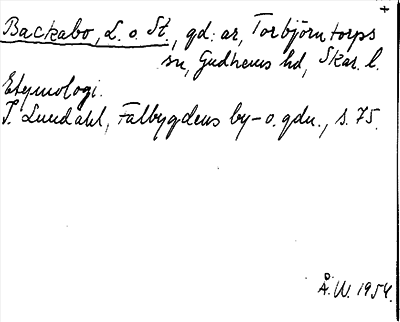 Backabo, L. o. St., gd: ar, Torbjörntorps
sn, Gudhems hd, Skar. l.
Etymologi.
I. Lundahl, Falbygdens by- o. gdn., s. 75.
Å. W. 1954.